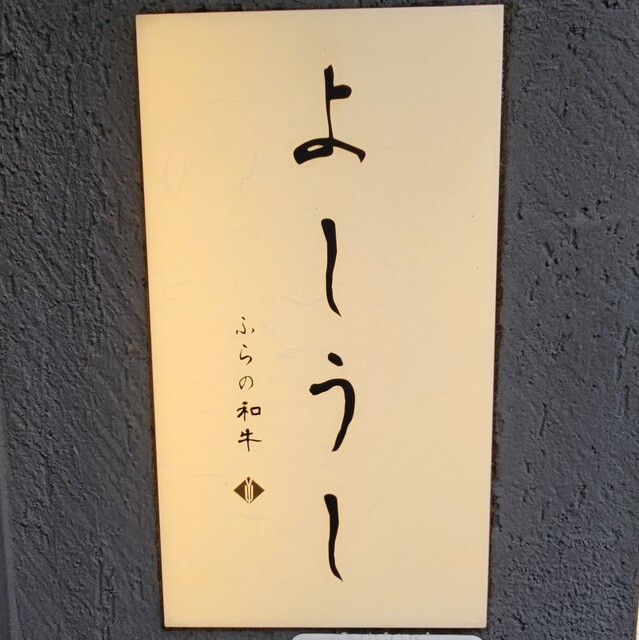 よしうし
ふらの和牛